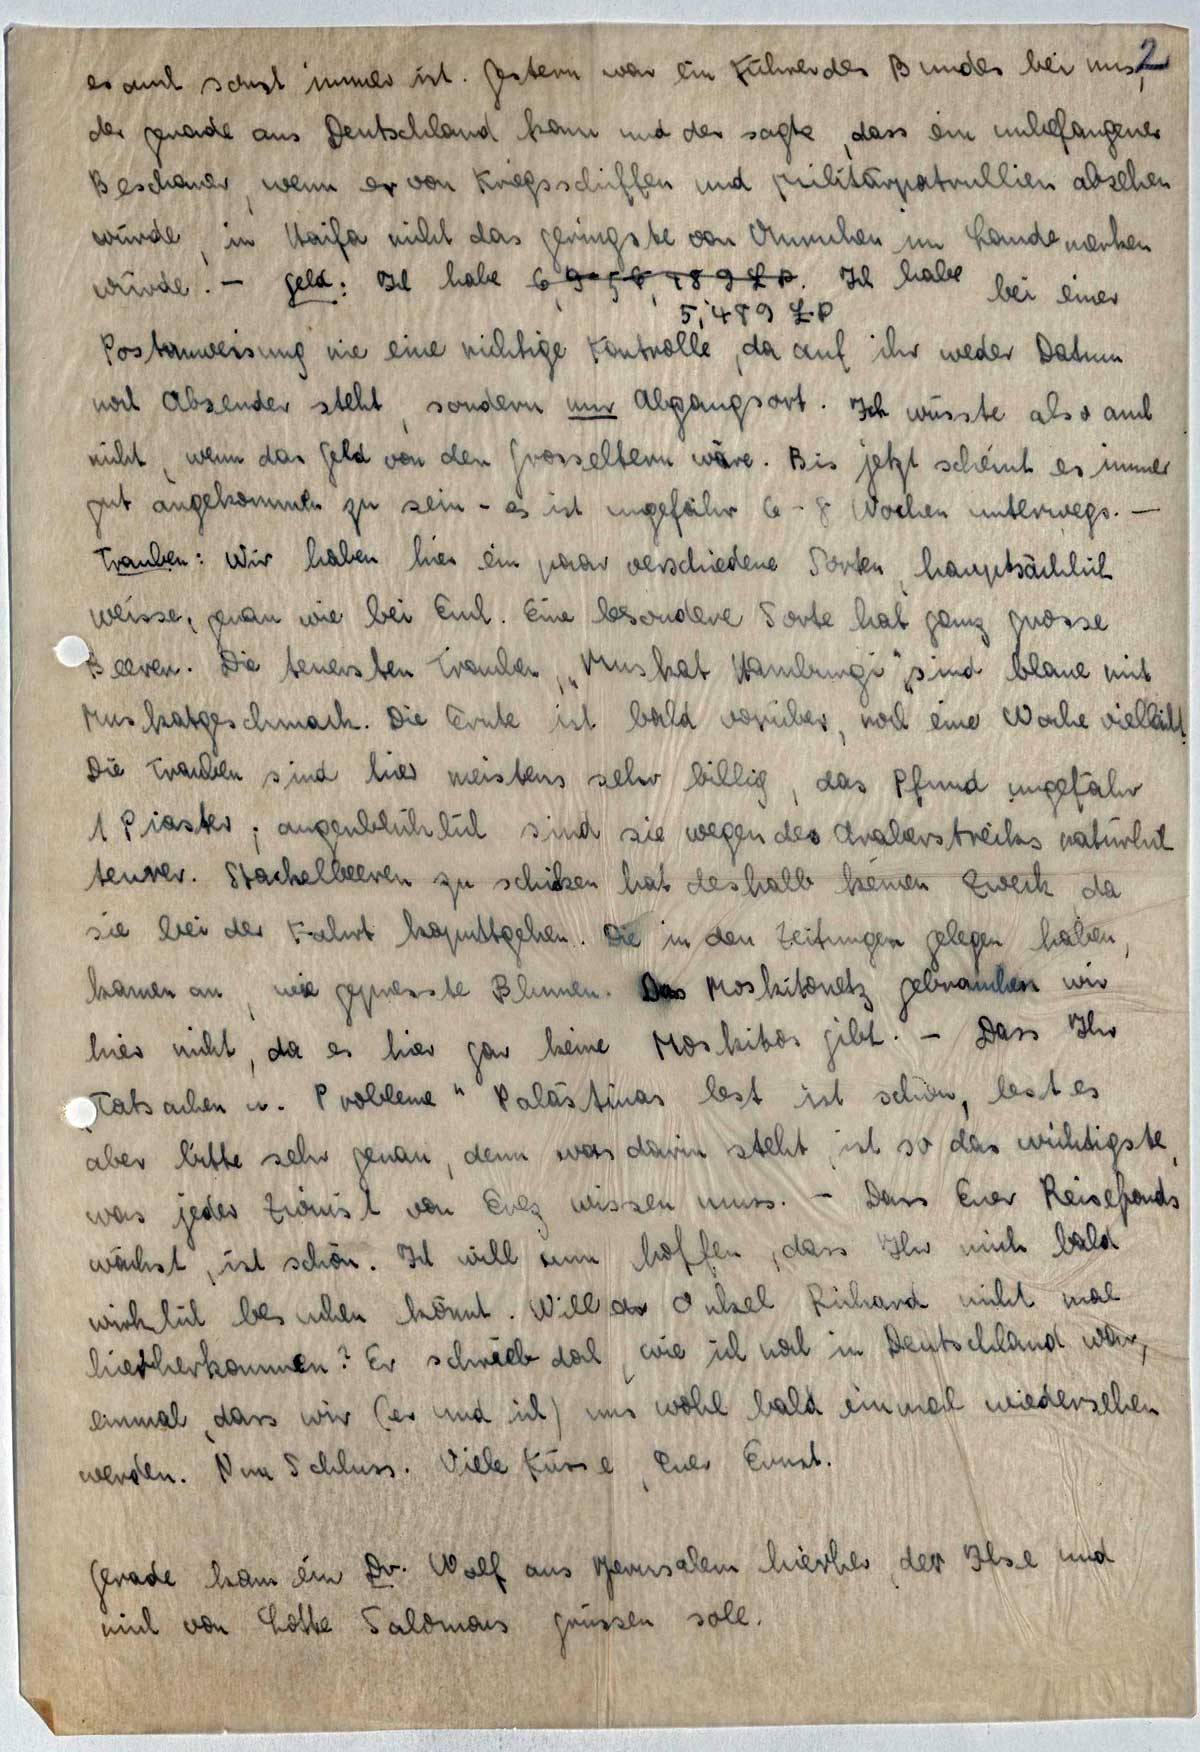 2
es auch sonst immer ist. Gestern war ein Führer des Bundes bei uns,
der gerade aus Deutschland kam und der sagte, dass ein unbefangener
Beschauer, wenn er von Kriegsschiffen und Militärpatrullien absehen
würde, in Haifa nicht das geringste von Unruhen im Lande merken
würde. – Geld: Ich habe Ich habe bei einer
5,489 £P
Postanweisung nie eine richtige Kontrolle, da auf ihr weder Datum
noch Absender steht, sondern nur Abgangsort. Ich wüsste also auch
nicht, wenn das Geld von den Grosseltern wäre. Bis jetzt scheint es immer
gut angekommen zu sein – es ist ungefähr 6 – 8 Wochen unterwegs. –
Trauben: Wir haben hier ein paar verschiedene Sorten, hauptsächlich
weisse, genau wie bei Euch. Eine besondere Sorte hat ganz grosse
Beeren. Die teuersten Trauben, „Muskat Hamburgi" sind blaue mit
Muskatgeschmack. Die Ernte ist bald vorüber, noch eine Woche vielleicht.
Die Trauben sind hier meistens sehr billig, das Pfund ungefähr
1 Piaster; augenblicklich sind sie wegen des Araberstreiks natürlich
teurer. Stachelbeeren zu schicken hat deshalb keinen Zweck, da
sie bei der Fahrt kaputtgehen. Die in den Zeitungen gelegen haben,
kamen an, wie gepresste Blumen. Das Moskitonetz gebrauchen wir
hier nicht, da es hier gar keine Moskitos gibt. – Dass Ihr
„Tatsachen u. Probleme" Palästinas lest ist schön, lest es
aber bitte sehr genau, denn was darin steht, ist so das wichtigste,
was jeder Zionist von Erez wissen muss. – Dass Euer Reisefonds
wächst, ist schön. Ich will nun hoffen, dass Ihr mich bald
wirklich besuchen könnt. Will der Onkel Richard nicht mal
hierherkommen? Er schrieb doch, wie ich noch in Deutschland war,
einmal, dass wir (er und ich) uns wohl bald einmal wiedersehen
werden. Nun Schluss. Viele Küsse, Euer Ernst.
Gerade kam ein Dr. Wolf aus Jerusalem hierher, der Ilse und
mich von Lotte Salomons grüssen soll.